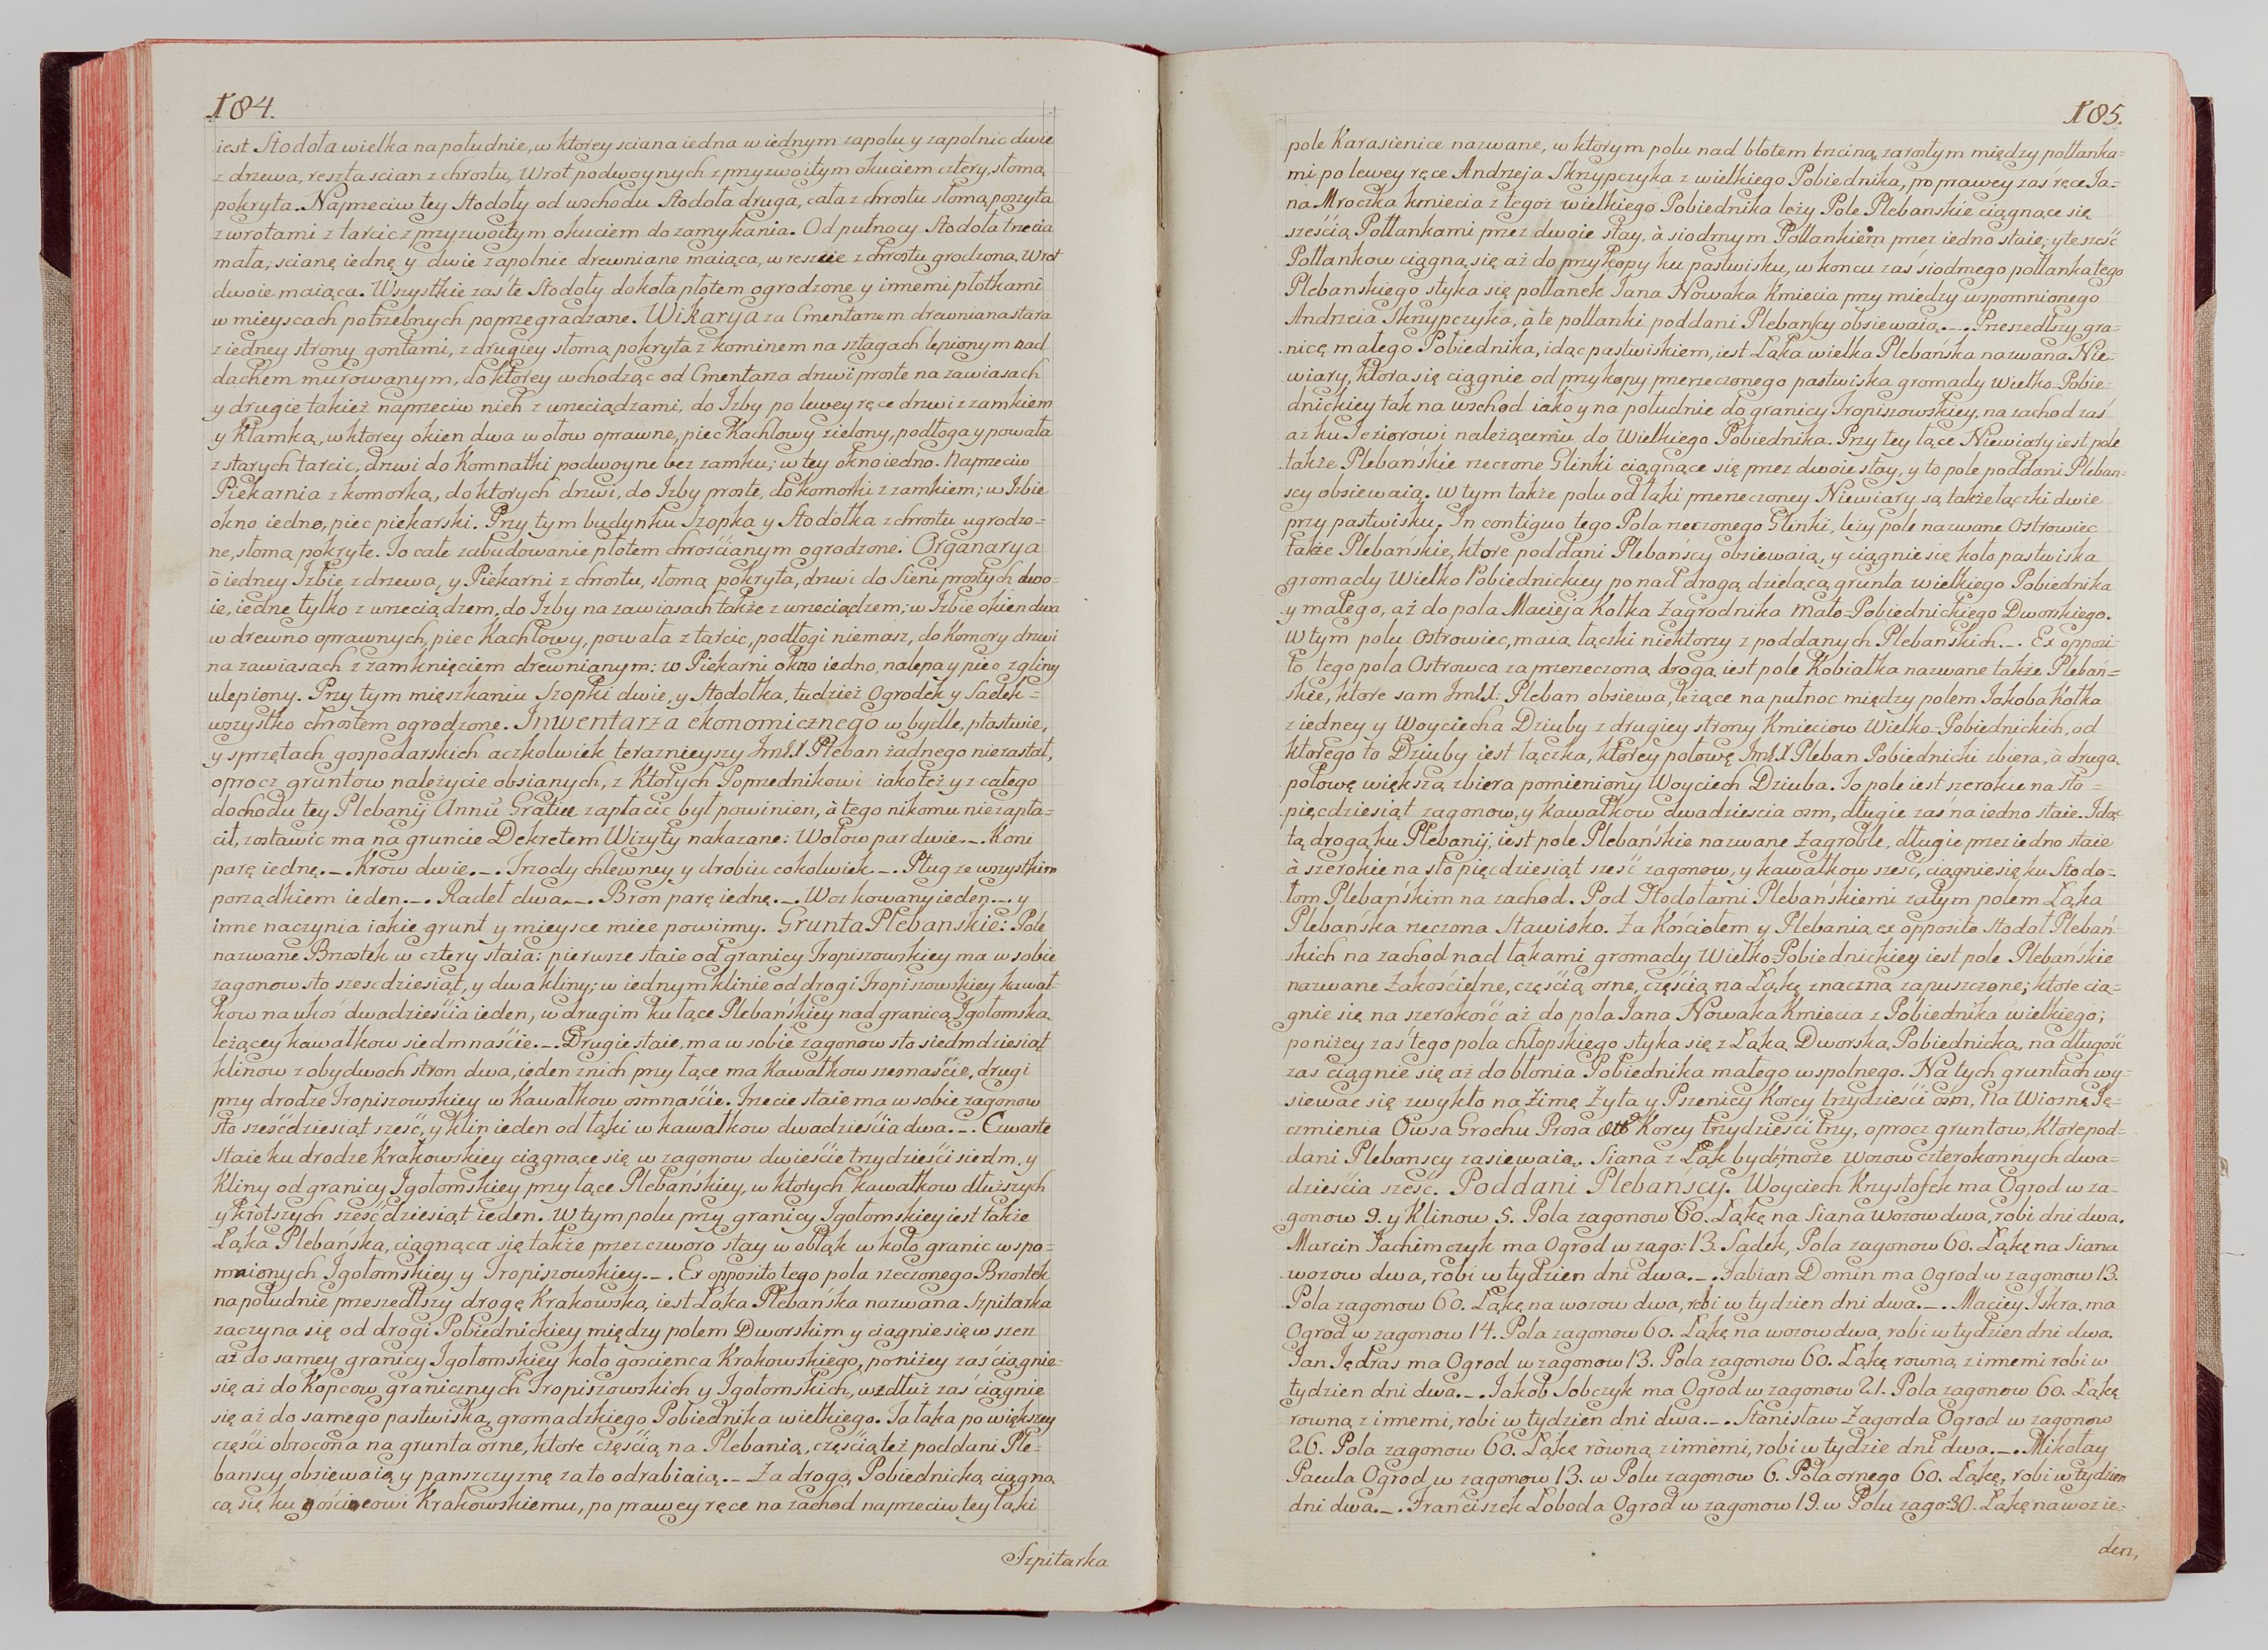 184.
iest Stodoła wielka na południe, w ktorey sciana iedna w iednym zapolu y zapolnic dwie
z drzewa, reszta scian z chrostu, Wrot podwoynych z przyzwoitym okuciem cztery, słomą
pokryta. Naprzeciw tey Stodoły od wschodu Stodoła druga, cała z chrostu słomą poszyta
z wrotami z tarcic z przyzwoitym okuciem do zamykania. Od pułnocy Stodoła trzecia
mała, scianę iednę y dwie zapolnic drewniane maiąca, w reszcie z chrostu grodzona, Wrot
dwoie maiąca. Wszystkie zaś te Stodoły dokoła płotem ogrodzone y innemi płotkami
w mieyscach potrzebnych poprzegradzane. Wikarya za Cmentarzem drewniana stara
z iedney strony gontami, z drugiey słomą pokryta z kominem na sztagach lepionym nad
dachem murowanym, do ktorey wchodząc od Cmentarza drzwi proste na zawiasach
y drugie takież naprzeciw nich z wrzeciądzami, do Izby po lewey ręce drzwi z zamkiem
y Klamką, w ktorey okien dwa w ołow oprawne, piec Kachlowy zielony, podłoga y powała
z starych tarcic, drzwi do Komnatki podwoyne bez zamku; w tey okno iedno. Naprzeciw
Piekarnia z komorką, do ktorych drzwi, do Izby proste, do komorki z zamkiem; w Izbie
okno iedno, piec piekarski. Przy tym budynku Szopka y Stodołka z chrostu ugrodzo-
ne, słomą pokryte. To całe zabudowanie płotem chrościanym ogrodzone. Organarya
ò iedney Izbie z drzewa, y Piekarni z chrostu, słomą pokryta, drzwi do Sieni prostych dwo-
ie, iedne tylko z wrzeciądzem, do Izby na zawiasach także z wrzeciądzem; w Izbie okien dwa
w drewno oprawnych, piec Kachlowy, powała z tarcic, podłogi niemasz, do Komory drzwi
na zawiasach z zamknięciem drewnianym: w Piekarni okno iedno, nalepa y piec z gliny
ulepiony. Przy tym mięszkaniu Szopki dwie, y Stodołka, tudzież Ogrodek y Sadek =
wszystko chrostem ogrodzone. Inwentarza ekonomicznego w bydle, ptastwie,
y sprzętach gospodarskich aczkolwiek teraznieyszy Jmć X Pleban żadnego niezastał,
oprocz gruntow należycie obsianych, z Ktorych Poprzednikowi iako też y z całego
dochodu tey Plebanij Annū Gratiæ zapłacic był powinien, à tego nikomu nie zapła-
cił, zostawic ma na gruncie Dekretem Wizyty nakazane: Wołow par dwie._. Koni
parę iednę._. Krow dwie._. Trzody chlewney y drobiu cokolwiek._. Pług ze wszystkim
porządkiem ieden._. Radeł dwa._. Bron parę iednę._. Woz kowany ieden._. y
inne naczynia iakie grunt y mieysce miec powinny. Grunta Plebanskie: Pole
nazwane Brzostek w cztery staia: pierwsze staie od granicy Tropiszowskiey ma w sobie
zagonow sto szescdziesiąt, y dwa kliny; w iednym klinie od drogi Tropiszowskiey kawał-
kow na ukoś dwadzieścia ieden, w drugim ku łące Plebańskiey nad granicą Igołomską
leżącey kawałkow siedmnaście._. Drugie staie, ma w sobie zagonow sto siedmdziesiąt
klinow z obydwoch stron dwa, ieden z nich przy łące ma Kawałkow szesnaście, drugi
przy drodze Tropiszowskiey w Kawałkow osmnaście. Trzecie staie ma w sobie zagonow
sto sześćdziesiąt sześć, y klin ieden od łąki w kawałkow dwadzieścia dwa._. Czwarte
staie ku drodze Krakowskiey ciągnące się w zagonow dwieście trzydzieści siedm, y
Kliny od granicy Igołomskiey przy łące Plebańskiey, w ktorych kawałkow dłuższych
y krotszych sześćdziesiąt ieden. W tym polu przy granicy Igołomskiey iest także
Łąka Plebańska, ciągnąca się także przez czworo stay w obłąk w koło granic wspo-
mnionych Igołomskiey y Tropiszowskiey._. Ex opposito tego pola rzeczonego Brzostek
na południe przeszedłszy drogę Krakowską iest Łąka Plebańska nazwana Szpitarka
zaczyna się od drogi Pobiednickiey między polem Dworskim y ciągnie się w szerz
aż do samey granicy Igołomskiey koło goscienca Krakowskiego, poniżey zaś ciągnie-
się aż do Kopcow granicznych Tropiszowskich y Igołomskich, wzdłuż zaś ciągnie
się aż do samego pastwiska gromadzkiego Pobiednika wielkiego. Ta łąka po większey
części obrocona na grunta orne, ktore częścią na Plebanią, częścią też poddani Ple-
banscy obsiewaią y panszczyznę za to odrabiaią._ Za drogą Pobiednicką ciągną
cą się ku gościncowi Krakowskiemu, po prawey ręce na zachod naprzeciw tey łąki
Szpitarka
185.
pole Karasienice nazwane, w ktorym polu nad błotem trzciną zarosłym między połłanka=
mi po lewey ręce Andrzeja Skrzypczyka z wielkiego Pobiednika, po prawey zaś ręce Ja=
na Mroczka kmiecia z tegoż wielkiego Pobiednika leży Pole Plebanskie ciągnące się
sześcią Połłankami przez dwoie stay, à siodmym Połłankiem przez iedno staie; y te sześć
Połłankow ciągną się aż do przykopy ku pastwisku, w koncu zaś siodmego połłanka tego
Plebanskiego styka się połłanek Jana Nowaka Kmiecia przy miedzy wspomnionego
Andrzeia Skrzypczyka, à te połłanki poddani Plebanscy obsiewaią._. Przeszedłszy gra=
nicę małego Pobiednika, idąc pastwiskiem, iest Łąka wielka Plebańska nazwana Nie=
wiary, ktora się ciągnie od przykopy przerzeczonego pastwiska gromady Wielko-Pobie-
dnickiey tak na wschod iako y na południe do granicy Tropiszowskiey, na zachod zaś
aż ku Jeziorowi należącemu do Wielkiego Pobiednika. Przy tey łące Niewiary iest pole
także Plebańskie rzeczone Glinki ciągnące się przez dwoie stay, y to pole poddani Pleban=
scy obsiewaią. W tym także polu od łąki przerzeczoney Niewiary są także łączki dwie
przy pastwisku. In contiguo tego Pola rzeczonego Glinki, leży pole nazwane Ostrowiec
także Plebańskie, ktore poddani Plebańscy obsiewaią, y ciągnie się koło pastwiska
gromady Wielko Pobiednickiey ponad drogą dzielącą grunta wielkiego Pobiednika
y małego, aż do pola Macieja Kotka Zagrodnika Mało-Pobiednickiego Dworskiego.
W tym polu Ostrowiec, maią łączki niektorzy z poddanych Plebanskich._. Ex opposi-
to tego pola Ostrowca za przerzeczoną drogą iest pole Kobiałka nazwane także Plebań=
skie, ktore sam Jmć X: Pleban obsiewa, leżące na pułnoc między polem Jakoba Kotka
z iedney y Woyciecha Dziuby z drugiey strony Kmieciow Wielko-Pobiednickich, od
ktorego to Dziuby iest łączka, ktorey połowę Jmć X Pleban Pobiednicki zbiera, à drugą
połowę większą zbiera pomieniony Woyciech Dziuba. To pole iest szerokie na sto =
pięcdziesiąt zagonow, y kawałkow dwadziescia osm, długie zaś na iedno staie. Idąc
tą drogą ku Plebanij, iest pole Plebańskie nazwane Zagroble, długie przez iedno staie
à szerokie na sto pięcdziesiąt sześć zagonow, y kawałkow sześć, ciągnie się ku Stodo-
łom Plebańskim na zachod. Pod Stodołami Plebańskiemi za tym polem Łąka
Plebańska rzeczona Stawisko. Za Kościołem y Plebanią ex opposito Stodoł Plebań-
skich na zachod nad łąkami gromady Wielko-Pobiednickiey iest pole Plebańskie
nazwane Zakościelne, częścią orne, częścią na Łąkę znaczną zapuszczone; ktore cią-
gnie się na szerokość aż do pola Jana Nowaka Kmiecia z Pobiednika wielkiego;
poniżey zaś tego pola chłopskiego styka się z Łąką Dworską Pobiednicką, na długość
zas ciągnie się aż do błonia Pobiednika małego wspolnego. Na tych gruntach wy=
siewac się zwykło na Zimę Żyta y Pszenicy Korcy trzydzieści osm, Na Wiosnę Ję=
czmienia Owsa Grochu Prosa Korcy trzydzieści trzy, oprocz gruntow, ktore pod-
dani Plebanscy zasiewaią. Siana z Łąk bydź może Wozow czterokonnych dwa=
dzieścia sześć. Poddani Plebanscy. Woyciech Krzysztofek ma Ogrod w za-
gonow 9. y Klinow 5. Pola zagonow 60. Łąkę na Siana Wozow dwa, robi dni dwa.
Marcin Jachimczyk ma Ogrod w zago: 13. Sadek, Pola zagonow 60. Łąkę na Siana
wozow dwa, robi w tydzien dni dwa._. Fabian Domin ma Ogrod w zagonow 13.
Pola zagonow 60. Łąkę na wozow dwa, robi w tydzien dni dwa._. Maciey Iskra, ma
Ogrod w zagonow 14. Pola zagonow 60. Łąkę na wozow dwa, robi w tydzien dni dwa.
Jan Jędras ma Ogrod w zagonow 13. Pola zagonow 60. Łąkę rowną z innemi robi w
tydzien dni dwa._. Jakob Sobczyk ma Ogrod w zagonow 21. Pola zagonow 60. Łąkę
rowną z innemi, robi w tydzien dni dwa._. Stanisław Zagorda Ogrod w zagonow
26. Pola zagonow 60. Łąkę rowną z innemi, robi w tydzie dni dwa._. Mikołay
Pacula Ogrod w zagonow 13. w Polu zagonow 6. Pola ornego 60. Łąkę, robi w tydzien
dni dwa._. Franciszek Łoboda Ogrod w zagonow 19. w Polu zago: 30. Łąkę na woz ie-
den,